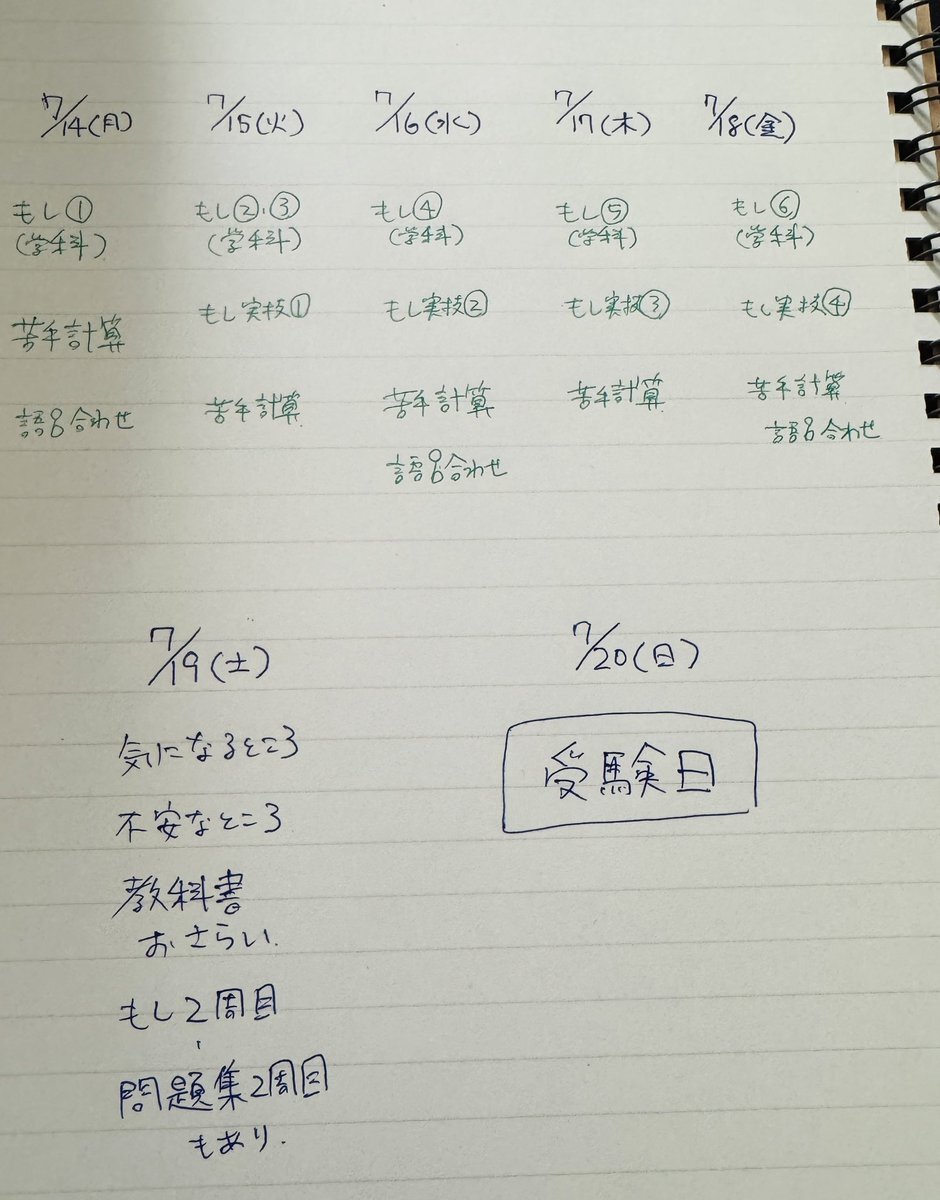 7/14(月)
もし①
(学科)
苦手計算
語呂合わせ
7/15(火)
もし②、③
(学科)
もし実技①
苦手計算
7/16(水)
もし④
(学科)
もし実技②
苦手計算
語呂合わせ
7/17(木)
もし⑤
(学科)
もし実技③
苦手計算
7/18(金)
もし⑥
(学科)
もし実技④
苦手計算
語呂合わせ
7/19(土)
気になるところ
不安なところ
教科書
おさらい.
もし2周目
・
問題集2周目
もあり.
7/20(日)
受験日